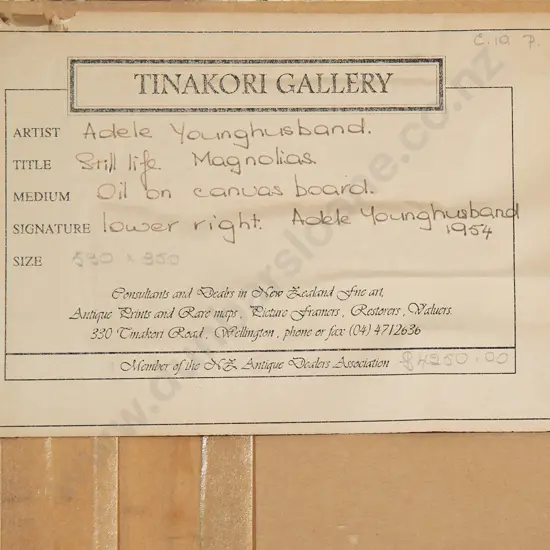 E.10 P.
TINAKORI GALLERY
ARTIST Adele Younghusband.
TITLE Still life. Magnolias.
MEDIUM Oil on canvas board.
SIGNATURE lower right. Adele Younghusband
1954
SIZE 520 x 350
Consultants and Dealrs in New Zealand Fne art,
Antique Prints and Rare maps, Picture Framers, Restorers, Valuers.
330 Tinakori Road, Wellington, phone or fax (04) 4712636
Member of the NZ Antique Dealers Association $4250.00